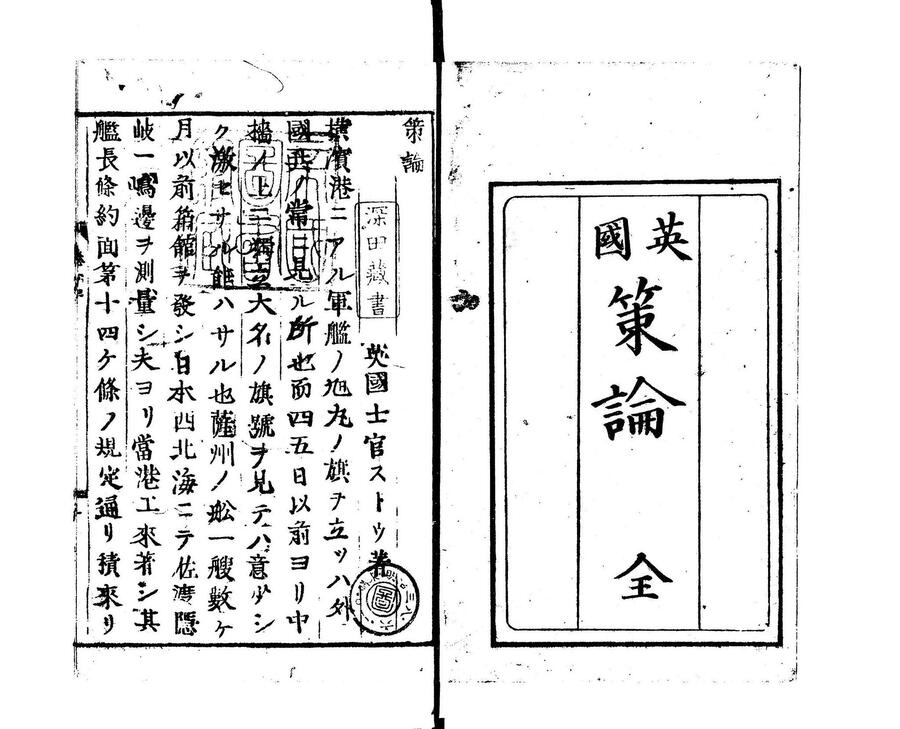 英國
策論
全
策論
深田藏書
英國士官ストウ著
横濱港ニアル軍艦ノ旭丸ノ旗ヲ立ツハ外
國兵ノ常ニ見ル所也而四五日以前ヨリ中
檣ノ上ニ獨立大名ノ旗號ヲ見テハ意少シ
ク激セサル能ハサル也薩州ノ舩一艘數ケ
月以前箱館ヲ發シ日本西北海ニテ佐渡隠
岐一嶋邊ヲ測量シ夫ヨリ當港エ來着シ其
艦長條約面第十四ケ條ノ規定通リ積來リ
圖